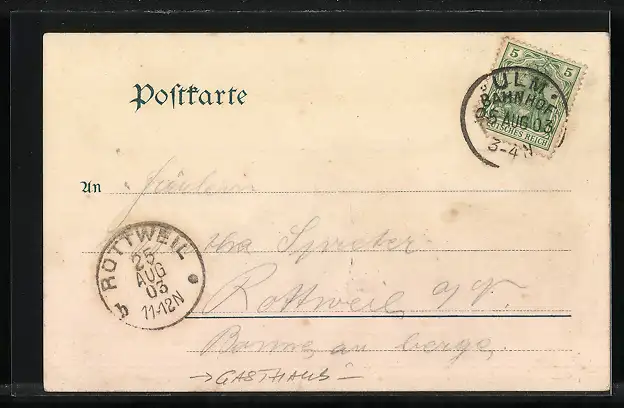 Postkarte
5 5
DEUTSCHES REICH
ULM
BAHNHOF
25 AUG 03
3-4 N
An Fräulein
Rottweil a/N.
ROTTWEIL
25
AUG
03
11-12N
b
→ GASTHAUS –